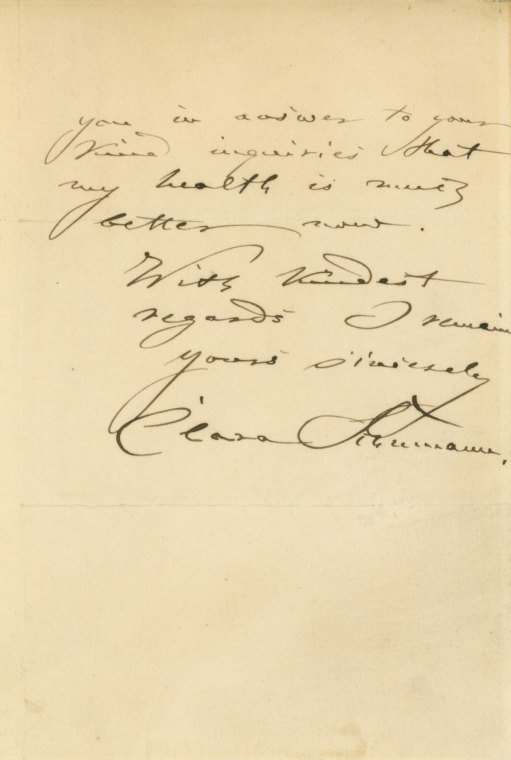 you in answer to your
kind inquiries that
my health is much
better now.
With kindest
regards I remain
yours sincerely
Clara Schumann.